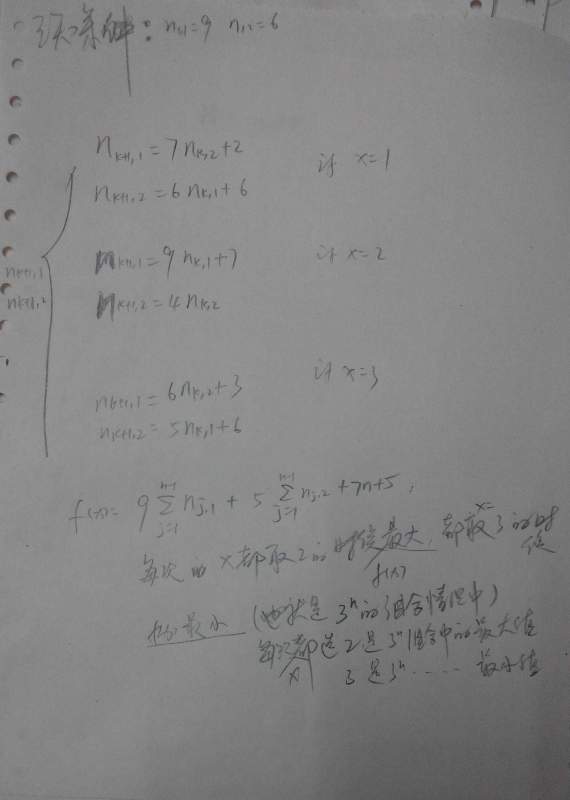 初始条件: n₁,₁=9 n₁,₂=6
n_{k+1,1} = 7n_{k,2}+2
if x=1
n_{k+1,2} = 6n_{k,1}+6
n_{k+1,1} = 9n_{k,1}+7
if x=2
n_{k+1,1}
n_{k+1,2}
n_{k+1,2} = 4n_{k,2}
if x=3
n_{k+1,1} = 6n_{k,2}+3
n_{k+1,2} = 5n_{k,1}+6
f(x)= 9∑_{j=1}^{n-1} n_{j,1} + 5∑_{j=1}^{n-1} n_{j,2} + 7n+5,
每次的x都取2的时候最大, 都取x=3的时候
f(x)
最小 (也就是3ⁿ的组合情况中)
每次都选2是3ⁿ组合中的最大值
x
3是3ⁿ...... 最小值